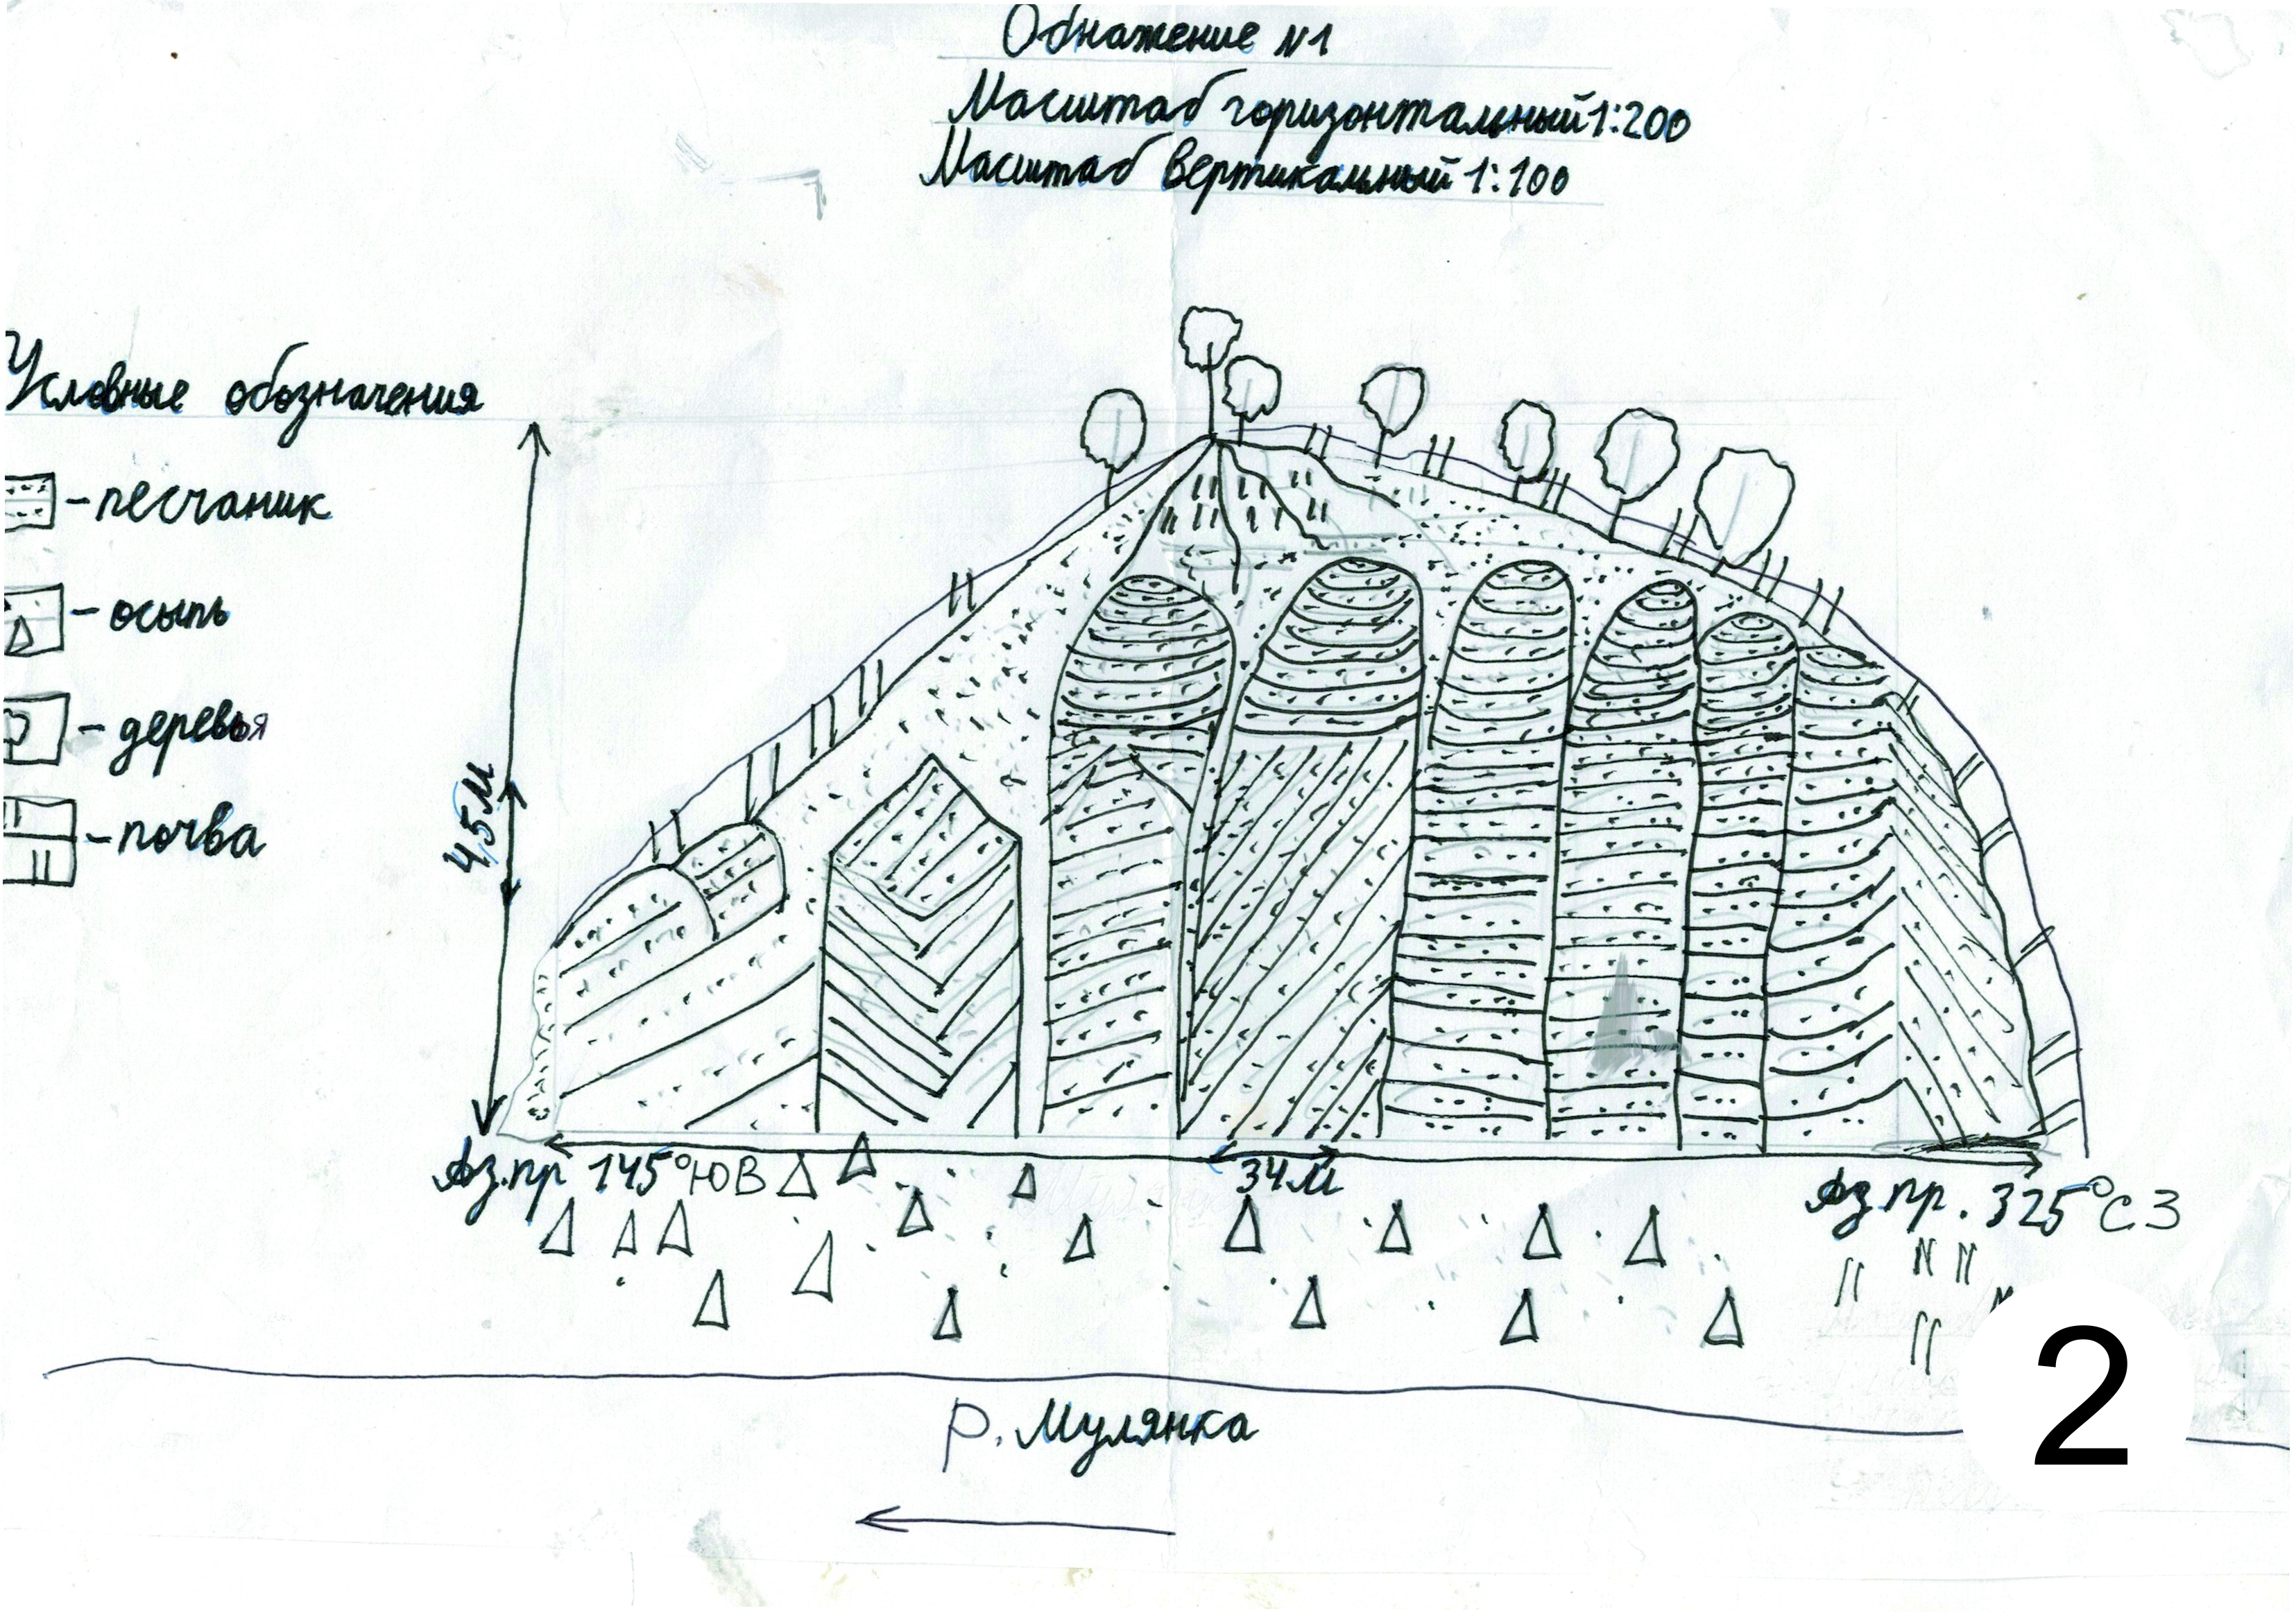 Обнажение N1
Масштаб горизонтальный 1:200
Масштаб вертикальный 1:100
Условные обозначения
- песчаник
- осыпь
- деревья
- почва
4,5м
Аз.пр 145° ЮВ
34м
Аз пр. 325° СЗ
р. Мулянка
2